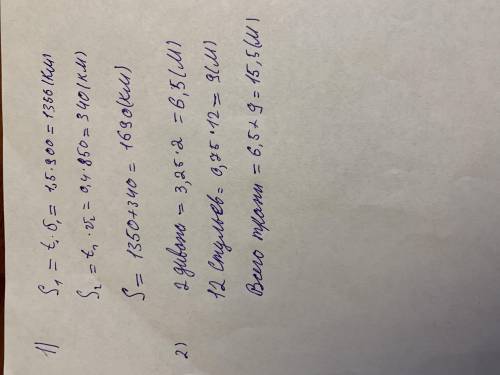 1) S₁ = t₁·v₁ = 1,5·900 = 1350(км)
S₂ = tₙ·v₂ = 0,4·850 = 340(км)
S = 1350+340 = 1690(км)
2) 2 дивана = 3,25·2 = 6,5(м)
12 стульев = 0,75·12 = 9(м)
Всего ткани = 6,5+9 = 15,5(м)